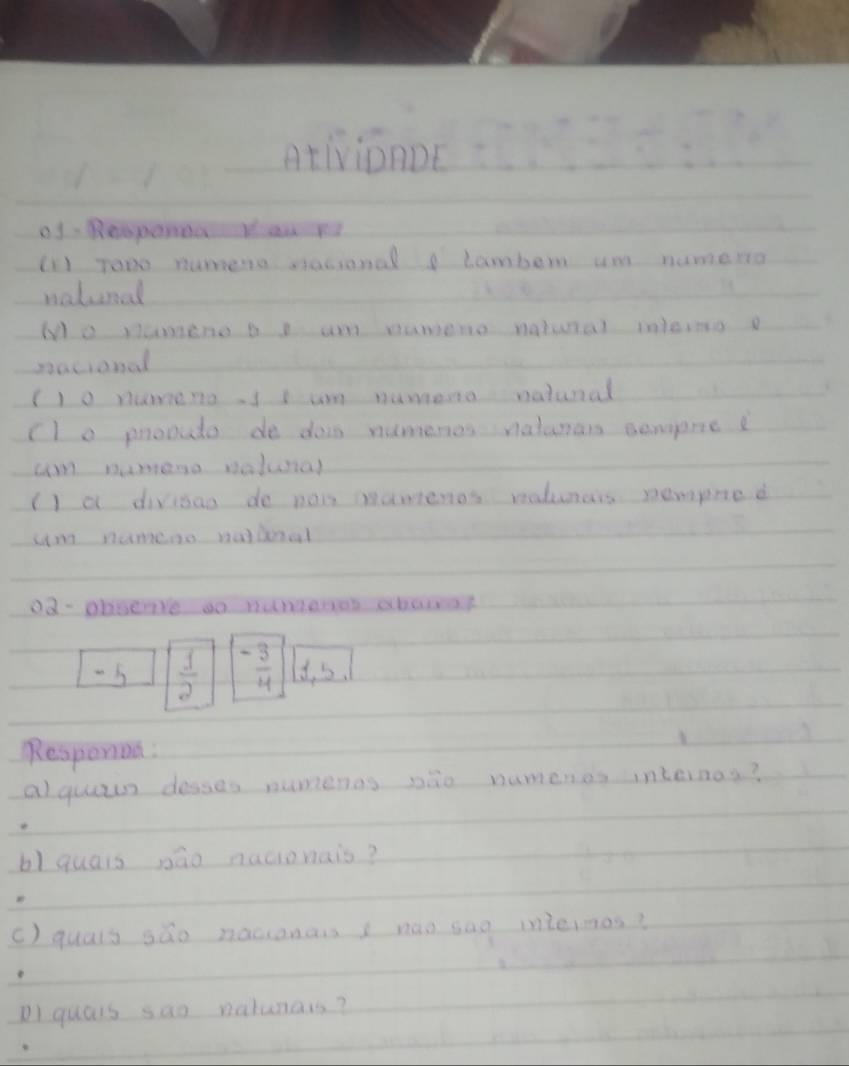 ATIVIDADE
01-Responda V ou F:
( ) TODO numero racional é tambem um numero
natural
(V) o numero 5 é um numero natural inteiro e
racional
( ) o numero -1 é um numero natural
( ) o produto de dois numeros naturais sempre é
um numero natural
( ) a divisao de dois numeros naturais sempre é
um numero natural
02- observe os numeros abaixo:
-5 1/2 -3/4 1,5
Responda:
a) quais desses numeros são numeros inteiros?
b) quais são racionais?
c) quais são racionais e nao sao inteiros?
D) quais sao naturais?